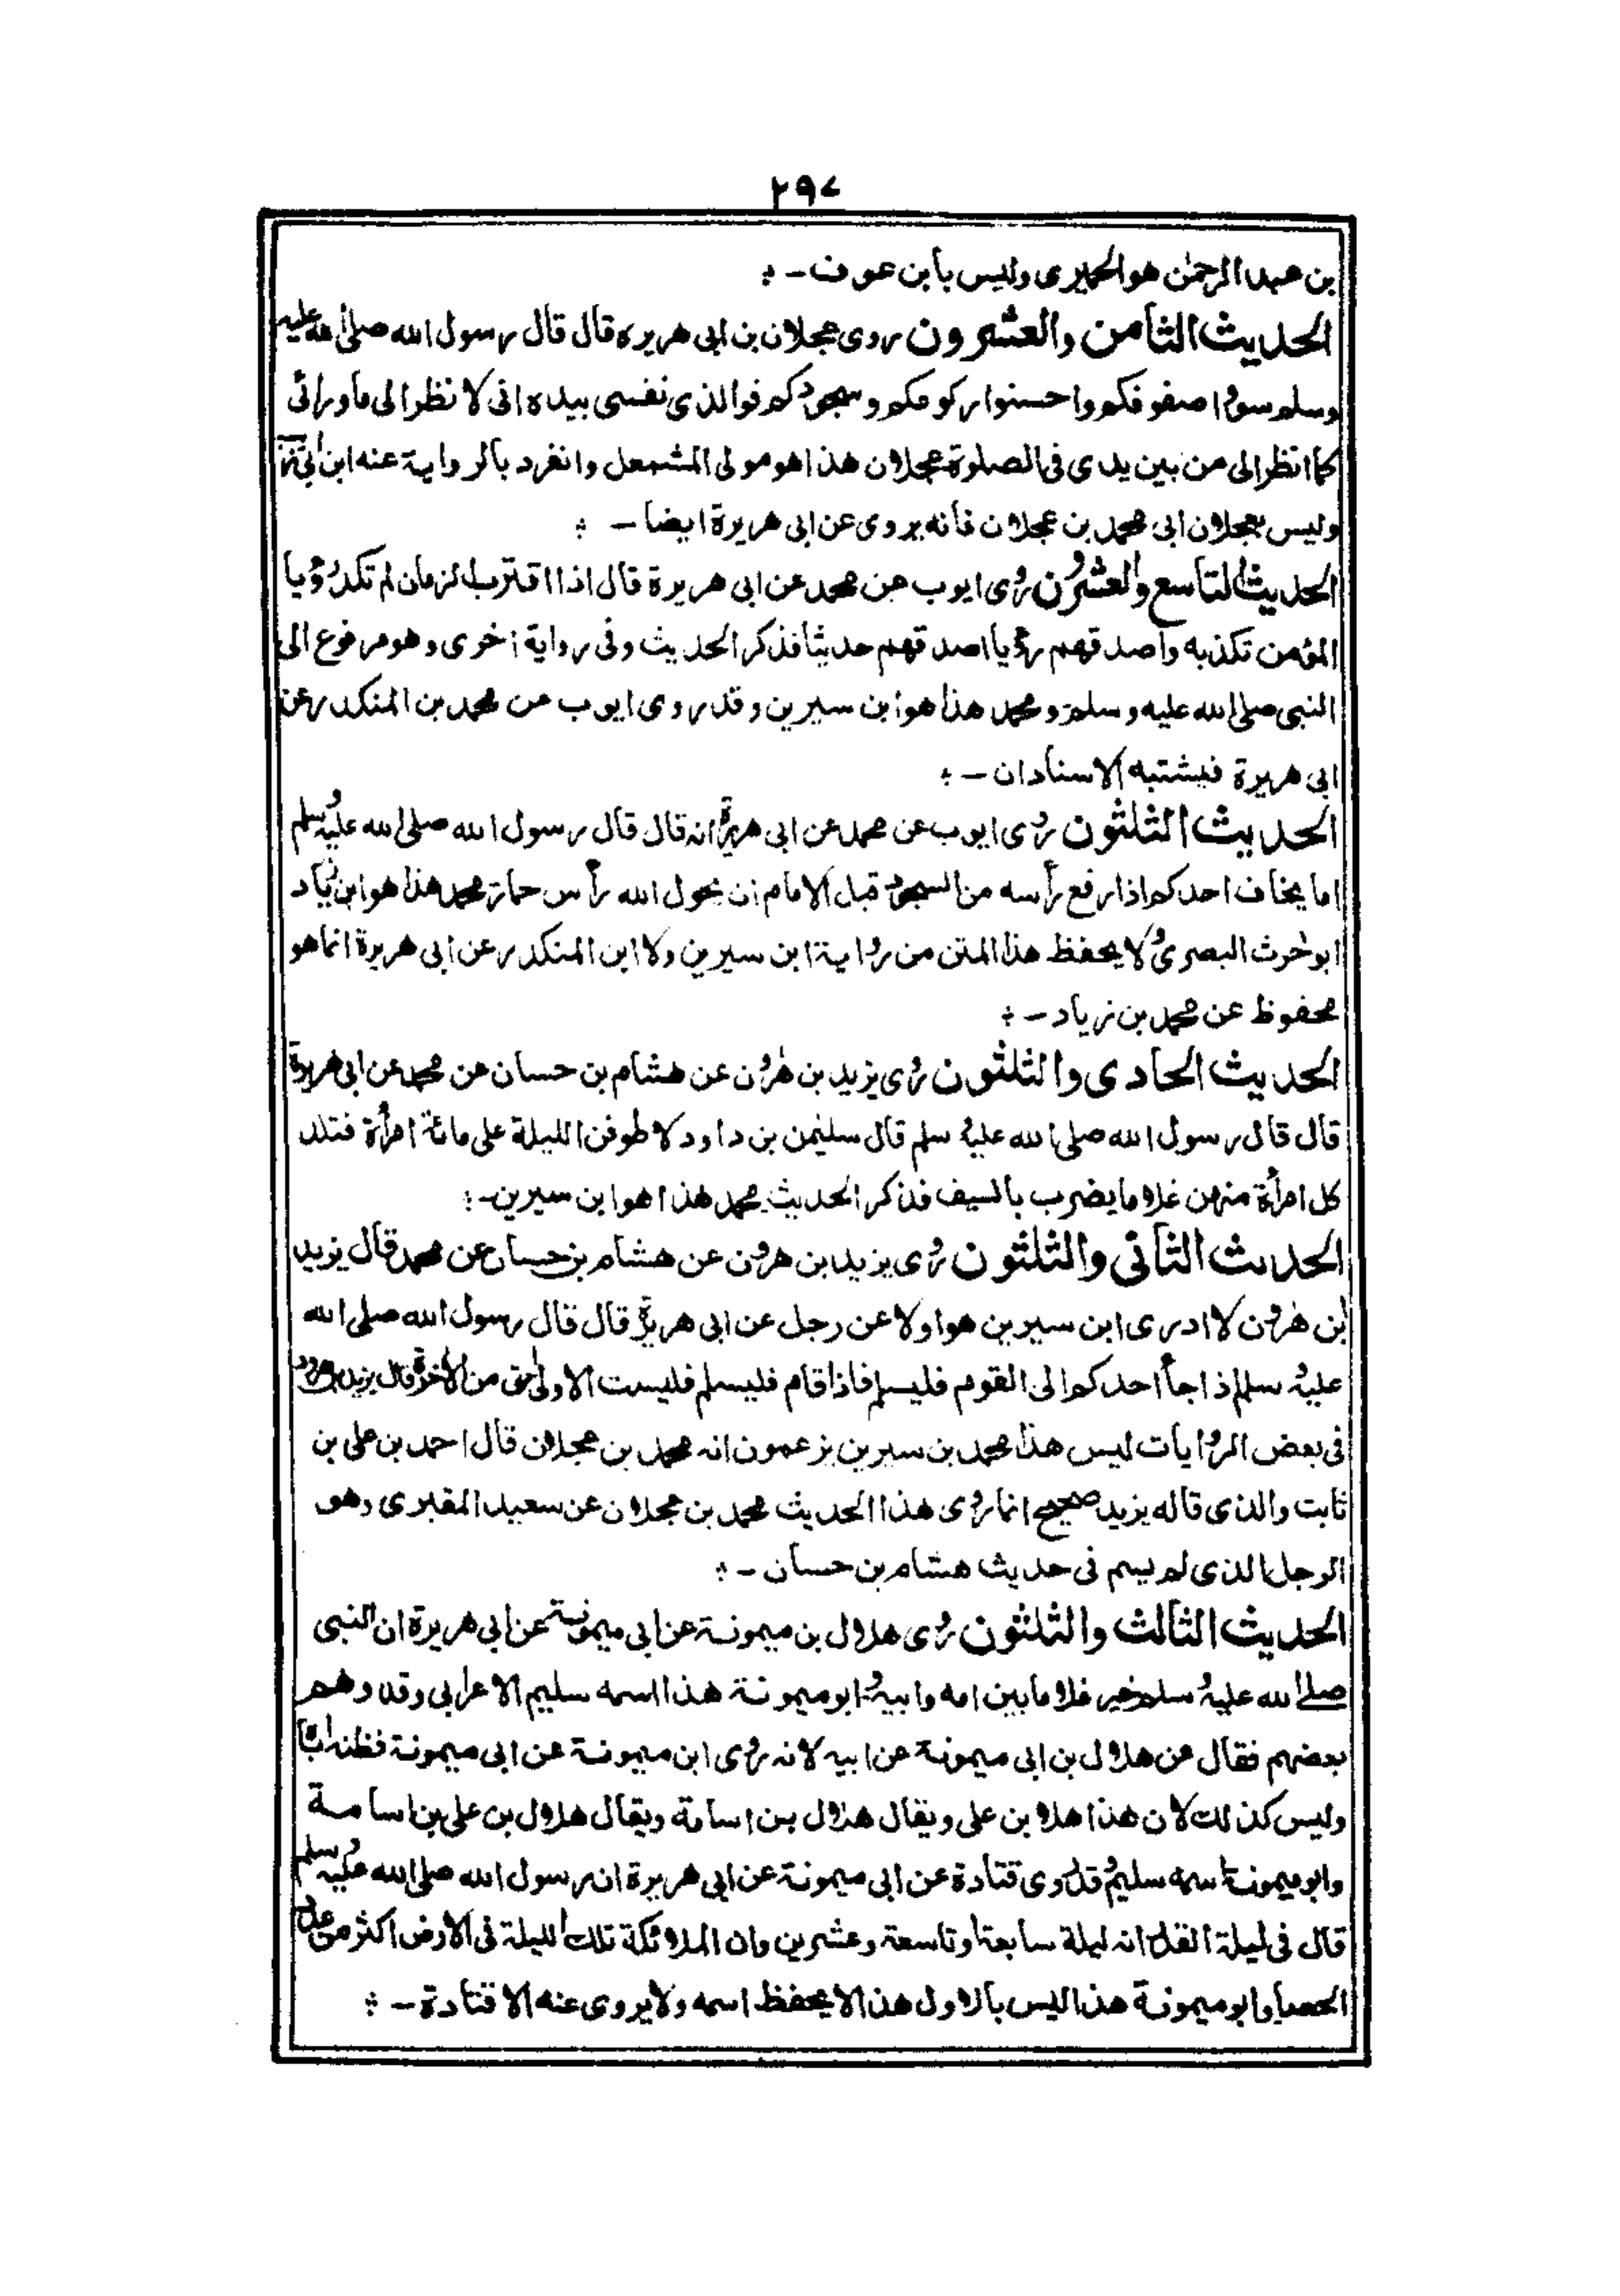 ۲۹۷
بن عبد الرحمٰن هو الحميرى وليس بابن عوف ــ ؞
الحديث الثامن والعشرون روى عجلان بن ابى هريره قال قال رسول الله صلى الله عليه
وسلم سووا صفوفكم واحسنوا ركوعكم وسجودكم فوالذى نفسى بيده انى لا نظر الى ماورائى
كما انظر الى من بين يدى فى الصلوة عجلان هذا هو مولى المشمعل وانفرد بالرواية عنه ابن ابى
وليس بعجلان ابى محمد بن عجلان فانه يروى عن ابى هريرة ايضا ــ ؞
الحديث التاسع والعشرون روى ايوب عن محمد عن ابى هريرة قال اذا اقترب الزمان لم تكد رؤيا
المؤمن تكذبه واصدقهم رؤيا اصدقهم حديثا فذكر الحديث وفى رواية اخرى وهو مرفوع الى
النبى صلى الله عليه وسلم ومحمد هذا هو ابن سيرين وقد روى ايوب عن محمد بن المنكدر عن
ابى هريرة فيشتبه الاسنادان ــ ؞
الحديث الثلثون روى ايوب عن محمد عن ابى هريرة انه قال قال رسول الله صلى الله عليه وسلم
اما يخاف احدكم اذا رفع رأسه من السجود قبل الامام ان يحول الله رأس حمار محمد هذا هو ابن زياد
ابو حرث البصرى ولا يحفظ هذا المتن من رواية ابن سيرين ولا ابن المنكدر عن ابى هريرة انما هو
محفوظ عن محمد بن زياد ــ ؞
الحديث الحادى والثلثون روى يزيد بن هٰرون عن هشام بن حسان عن محمد عن ابى هريرة
قال قال رسول الله صلى الله عليه وسلم قال سليمٰن بن داود لا طوفن الليلة على مائة امرأة فتلد
كل امرأة منهن غلاما يضرب بالسيف فذكر الحديث محمد هذا هو ابن سيرين ــ ؞
الحديث الثانى والثلثون روى يزيد بن هرون عن هشام بن حسان عن محمد قال يزيد
بن هٰرون لا ادرى ابن سيرين هو اولا عن رجل عن ابى هريرة قال قال رسول الله صلى الله
عليه وسلم اذا جأ احدكم الى القوم فليسلم فاذا قام فليسلم فليست الاولى احق من الاخرة قال يزيد
فى بعض الروايات ليس هذا محمد بن سيرين يزعمون انه محمد بن عجلان قال احمد بن على بن
ثابت والذى قاله يزيد صحيح انما روى هذا الحديث محمد بن عجلان عن سعيد المقبرى وهو
الرجل الذى لم يسم فى حديث هشام بن حسان ــ ؞
الحديث الثالث والثلثون روى هلال بن ميمونة عن ابى ميمونة عن ابى هريرة ان النبى
صلى الله عليه وسلم خير غلاما بين امه وابيه وابو ميمونة هذا اسمه سليم الاعرابى وقد وهم
بعضهم فقال عن هلال بن ابى ميمونة عن ابيه لانه روى ابن ميمونة عن ابى ميمونة فظنه اباه
وليس كذلك لان هذا هلا بن على ويقال هلال بن اسامة ويقال هلال بن على بن اسامة
وابو ميمونة اسمه سليم وقد روى قتادة عن ابى ميمونة عن ابى هريرة ان رسول الله صلى الله عليه وسلم
قال فى ليلة القدر انه ليلة سابعة او تاسعة وعشرين وان الملائكة تلك الليلة فى الارض اكثر من عدد
الحصا وابو ميمونة هذا ليس بالاول هذا لا يحفظ اسمه ولا يروى عنه الا قتادة ــ ؞